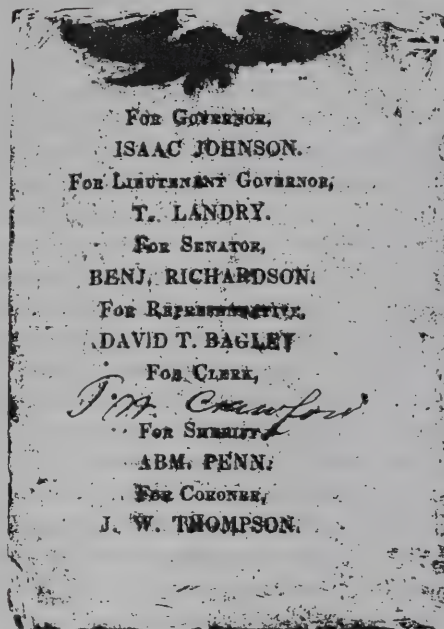 For Governor,
ISAAC JOHNSON.
For Lieutenant Governor,
T. LANDRY.
For Senator,
BENJ. RICHARDSON.
For Representative,
DAVID T. BAGLEY
For Clerk,
Crawford
For Sheriff,
ABM. PENN.
For Coroner,
J. W. THOMPSON.